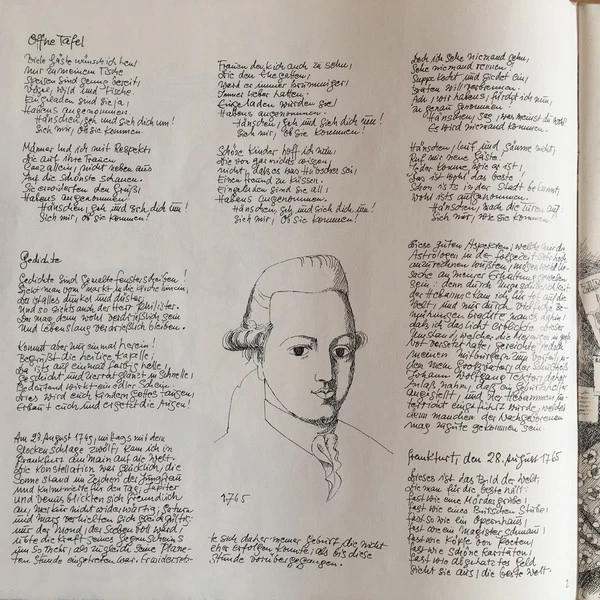 Offne Tafel
Viele Gäste wünsch ich heut
Mir zu meinem Tische!
Speisen sind genug bereit,
Vögel, Wild und Fische.
Eingeladen sind sie ja,
Habens angenommen.
Hänschen, geh und sieh dich um!
Sieh mir, ob sie kommen.
Männer lud ich mit Respekt,
Die auf ihre Frauen
Ganz allein, nicht neben aus
Auf die schönste schauen.
Sie erwiderten den Gruß,
Habens angenommen.
Hänschen, geh und sieh dich um!
Sieh mir, ob sie kommen!
Gedichte
Gedichte sind gemalte Fensterscheiben!
Sieht man vom Markt in die Kirche hinein,
Da ist alles dunkel und düster;
Und so sieht's auch der Herr Philister.
Der mag denn wohl verdrießlich sein
Und lebenslang verdrießlich bleiben.
Kommt aber nur einmal herein!
Begrüßt die heilige Kapelle;
Da ist's auf einmal farbig helle,
Geschicht und Zierrat glänzt in Schnelle,
Bedeutend wirkt ein edler Schein.
Dies wird euch Kindern Gottes taugen,
Erbaut euch und ergetzt die Augen!
Am 28. August 1749, mittags mit dem
Glockenschlage zwölf, kam ich in
Frankfurt am Main auf die Welt.
Die Konstellation war glücklich, die
Sonne stand im Zeichen der Jungfrau
und kulminierte für den Tag; Jupiter
und Venus blickten sich freundlich
an, Merkur nicht widerwärtig, Saturn
und Mars verhielten sich gleichgültig;
nur der Mond, der soeben voll ward,
übte die Kraft seines Gegenscheins
um so mehr, als zugleich seine Plane-
ten-Stunde eingetreten war. Er widersetz-
Frauen denk ich auch zu sehn,
Die den Ehegatten,
Ward er immer brummiger,
Immer lieber hatten.
Eingeladen wurden sie,
Habens angenommen.
Hänschen, geh und sieh dich um!
Sieh mir, ob sie kommen!
Schöne Kinder hoff ich nun,
Die von gar nichts wissen,
Nicht, dass es was Hübsches sei,
Einen Freund zu küssen.
Eingeladen sind sie all,
Habens angenommen.
Hänschen, geh und sieh dich um!
Sieh mir, ob sie kommen!
1765
te sich daher meiner Geburt, die nicht
eher erfolgen konnte, als bis diese
Stunde vorübergegangen.
Doch ich sehe niemand gehn,
Sehe niemand rennen!
Suppe kocht und siedet ein,
Braten will verbrennen.
Ach, wir habens, fürcht ich nun,
Zu genau genommen!
Hänschen, sag, was meinst du wohl?
Es wird niemand kommen!
Hänschen, lauf und säume nicht,
Ruf mir neue Gäste!
Jeder komme, wie er ist,
Das ist wohl das beste!
Schon ists in der Stadt bekannt,
Wohl ists aufgenommen.
Hänschen, mach die Türen auf:
Sieh mir, wie sie kommen!
Diese guten Aspekten, welche mir die
Astrologen in der Folgezeit sehr hoch
anzurechnen wußten, mögen wohl Ur-
sache an meiner Erhaltung gewesen
sein: denn durch Ungeschicklichkeit
der Hebamme kam ich für tot auf die
Welt, und nur durch vielfache Be-
mühungen brachte man es dahin,
daß ich das Licht erblickte. Dieser
Umstand, welcher die Meinigen in große
Not versetzt hatte, gereichte jedoch
meinen Mitbürgern zum Vorteil, in-
dem mein Großvater, der Schultheiß
Johann Wolfgang Textor, daher
Anlaß nahm, daß ein Geburtshelfer
angestellt, und der Hebammen-Un-
terricht eingeführt wurde, welches
denn manchem der Nachgebornen
mag zugute gekommen sein.
Frankfurt, den 28. August 1765
Dieses ist das Bild der Welt,
Die man für die beste hält:
Fast wie eine Mördergrube,
Fast wie eines Burschen Stube,
Fast so wie ein Opernhaus,
Fast wie ein Magisterschmaus,
Fast wie Köpfe von Poeten,
Fast wie schöne Raritäten,
Fast wie abgehatztes Geld
Sieht sie aus, die beste Welt.